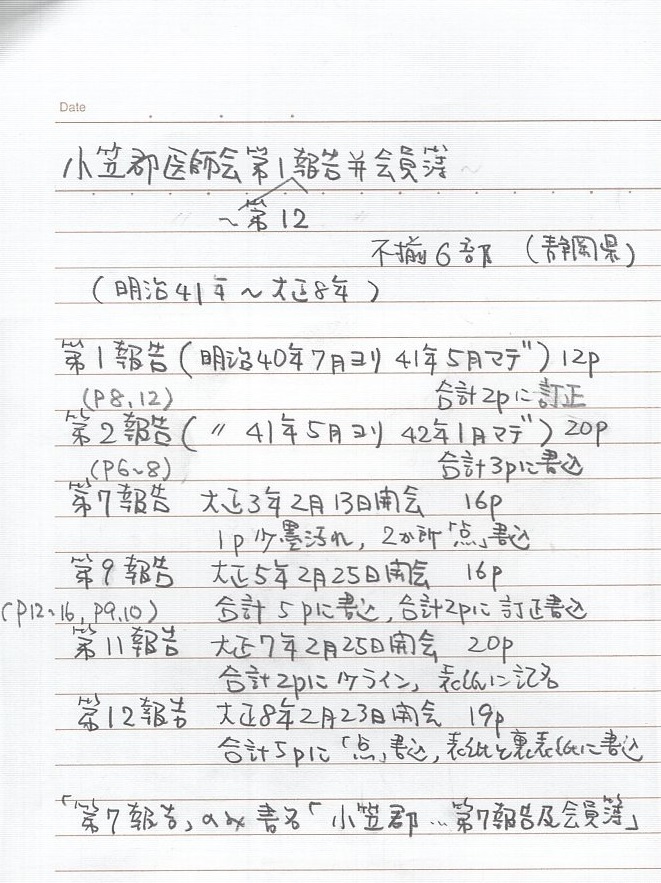 Date
小笠郡医師会第1報告并会員簿
～第12
不揃6部 (静岡県)
(明治41年～大正8年)
第1報告(明治40年7月ヨリ 41年5月マデ) 12p
(P8, 12) 合計2pに訂正
第2報告(〃 41年5月ヨリ 42年1月マデ) 20p
(P6~8) 合計3pに書込
第7報告 大正3年2月13日開会 16p
1pウ墨汚れ, 2か所「点」書込
第9報告 大正5年2月25日開会 16p
(P12~16, P9, 10) 合計5pに書込, 合計2pに訂正書込
第11報告 大正7年2月25日開会 20p
合計2pにウライン, 表紙に記名
第12報告 大正8年2月23日開会 19p
合計5pに「点」書込, 表紙と裏表紙に書込
「第7報告」のみ書名「小笠郡…第7報告及会員簿」